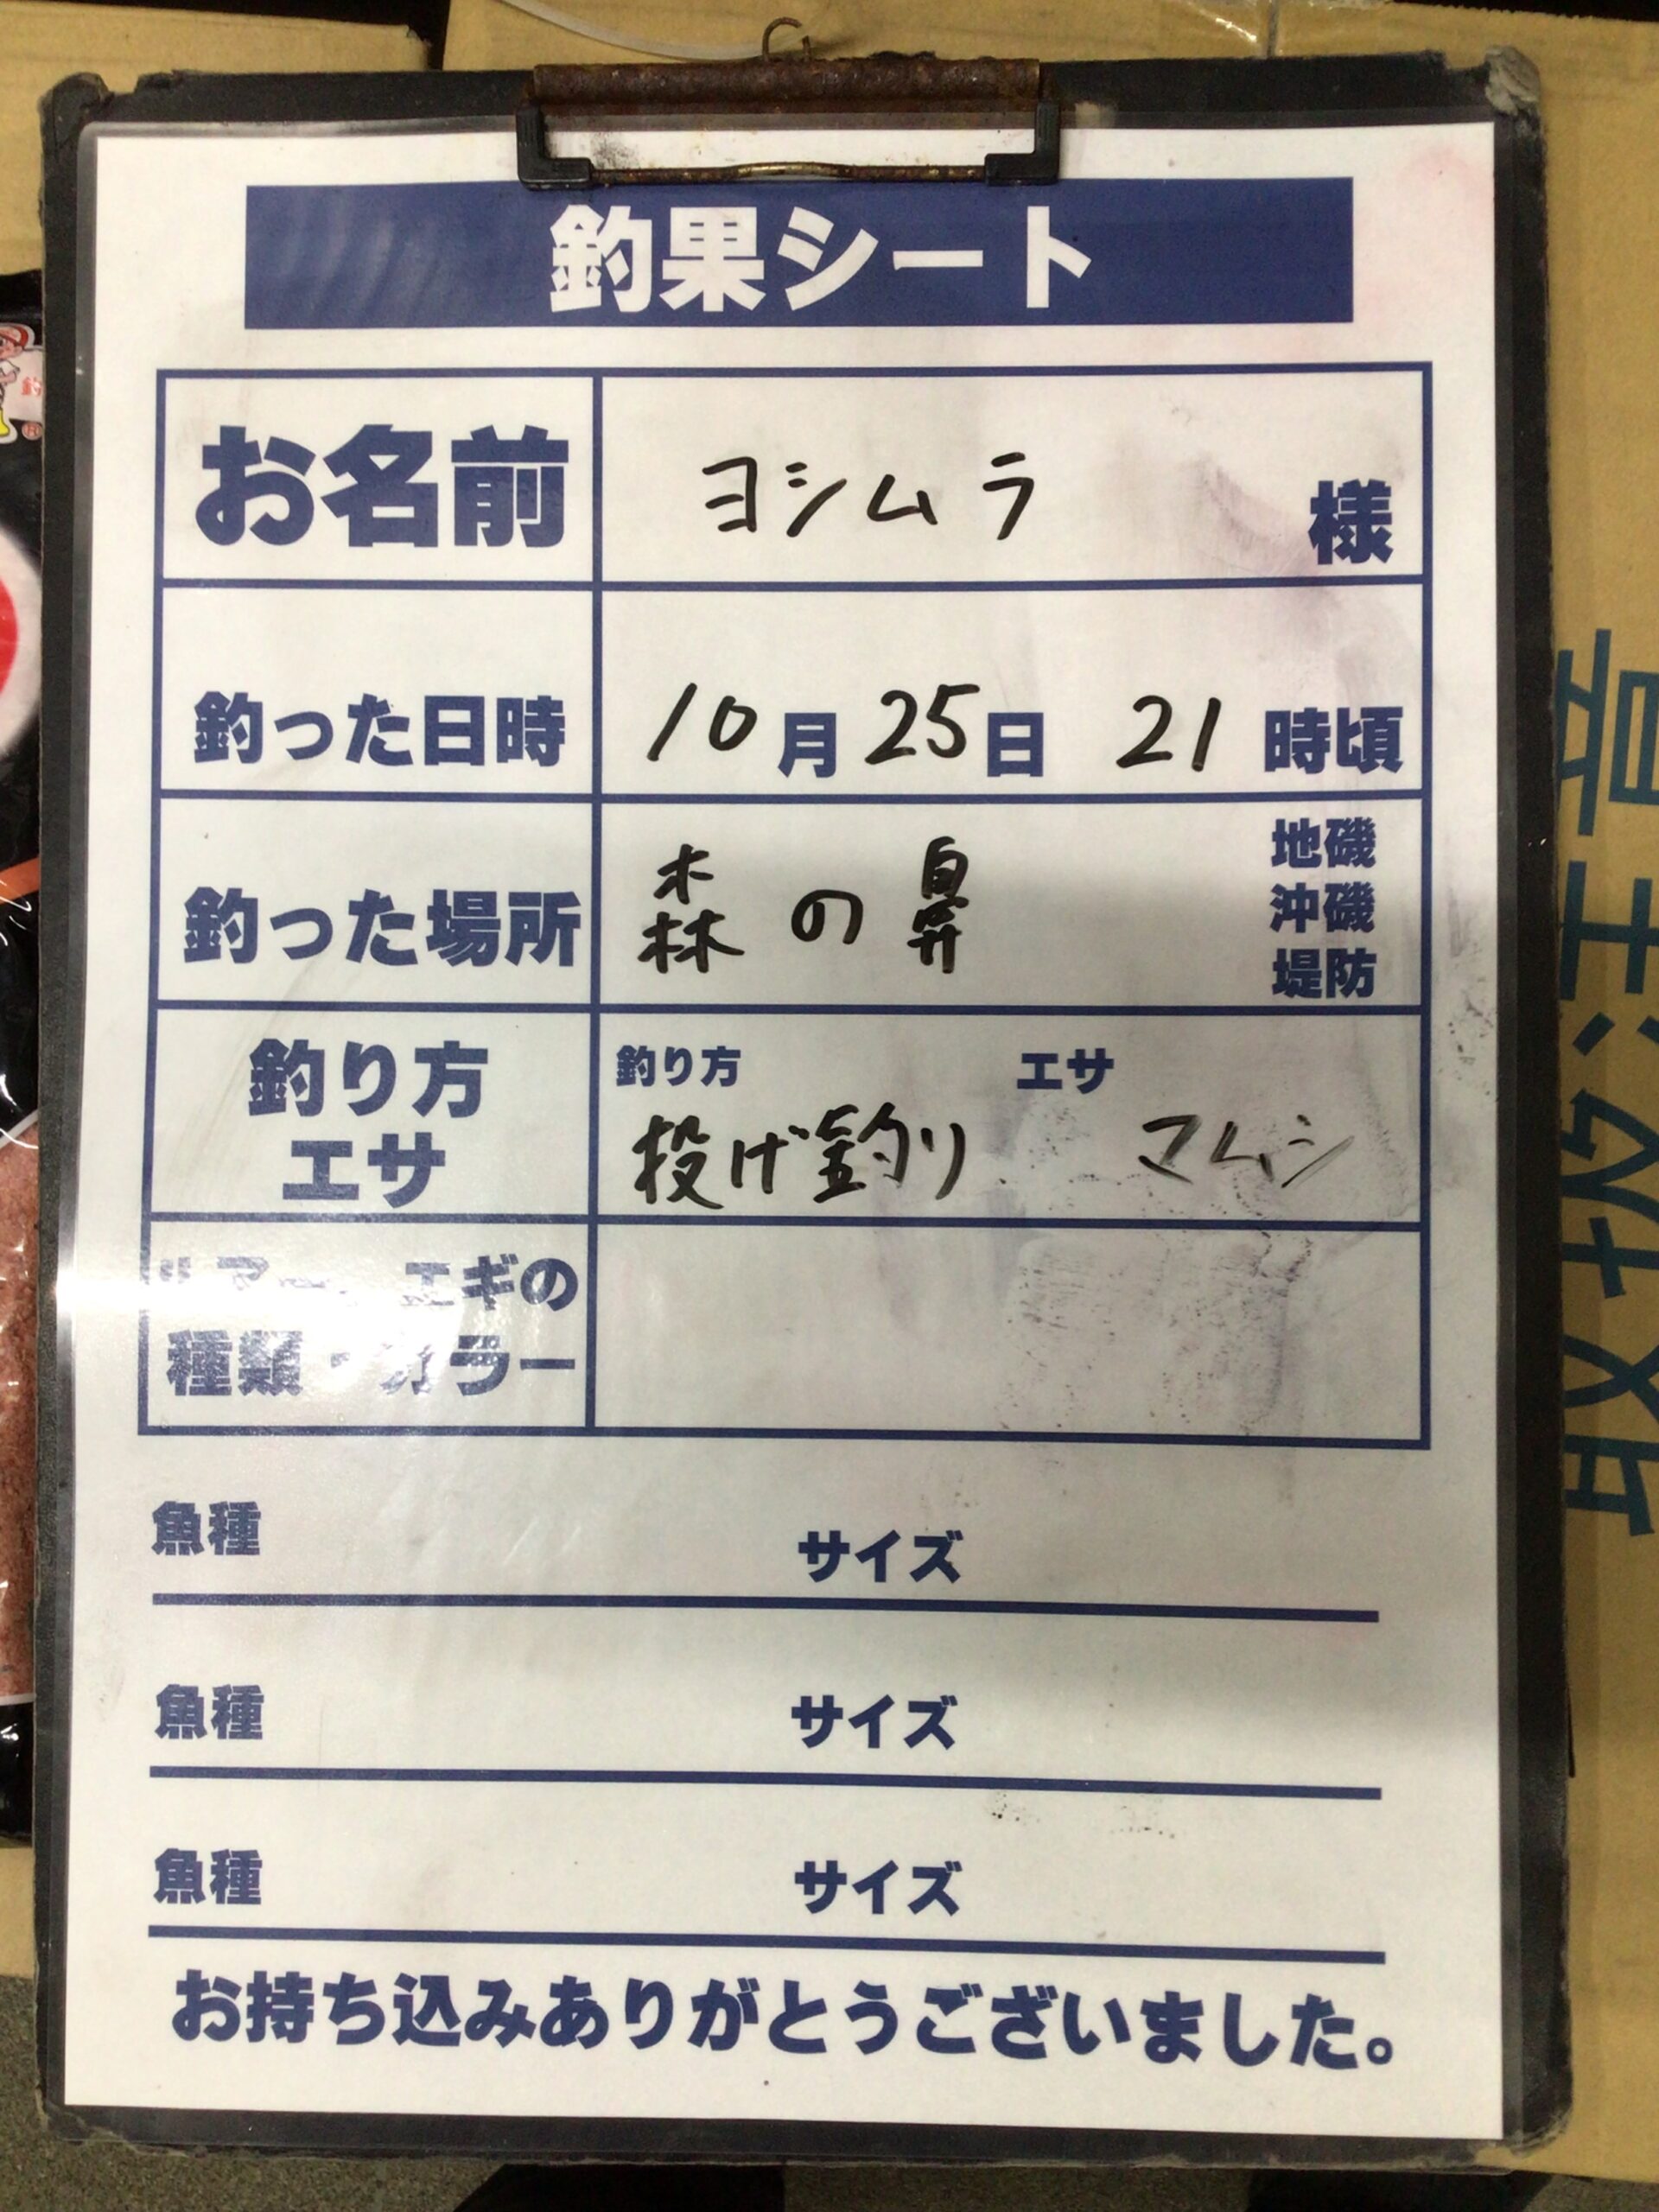 釣果シート
お名前 ヨシムラ 様
釣った日時 10月25日 21時頃
釣った場所 森の鼻 地磯
沖磯
堤防
釣り方
エサ
釣り方 エサ
投げ釣り マムシ
ルアー、エギの
種類・カラー
魚種 サイズ
魚種 サイズ
魚種 サイズ
お持ち込みありがとうございました。
取扱注意